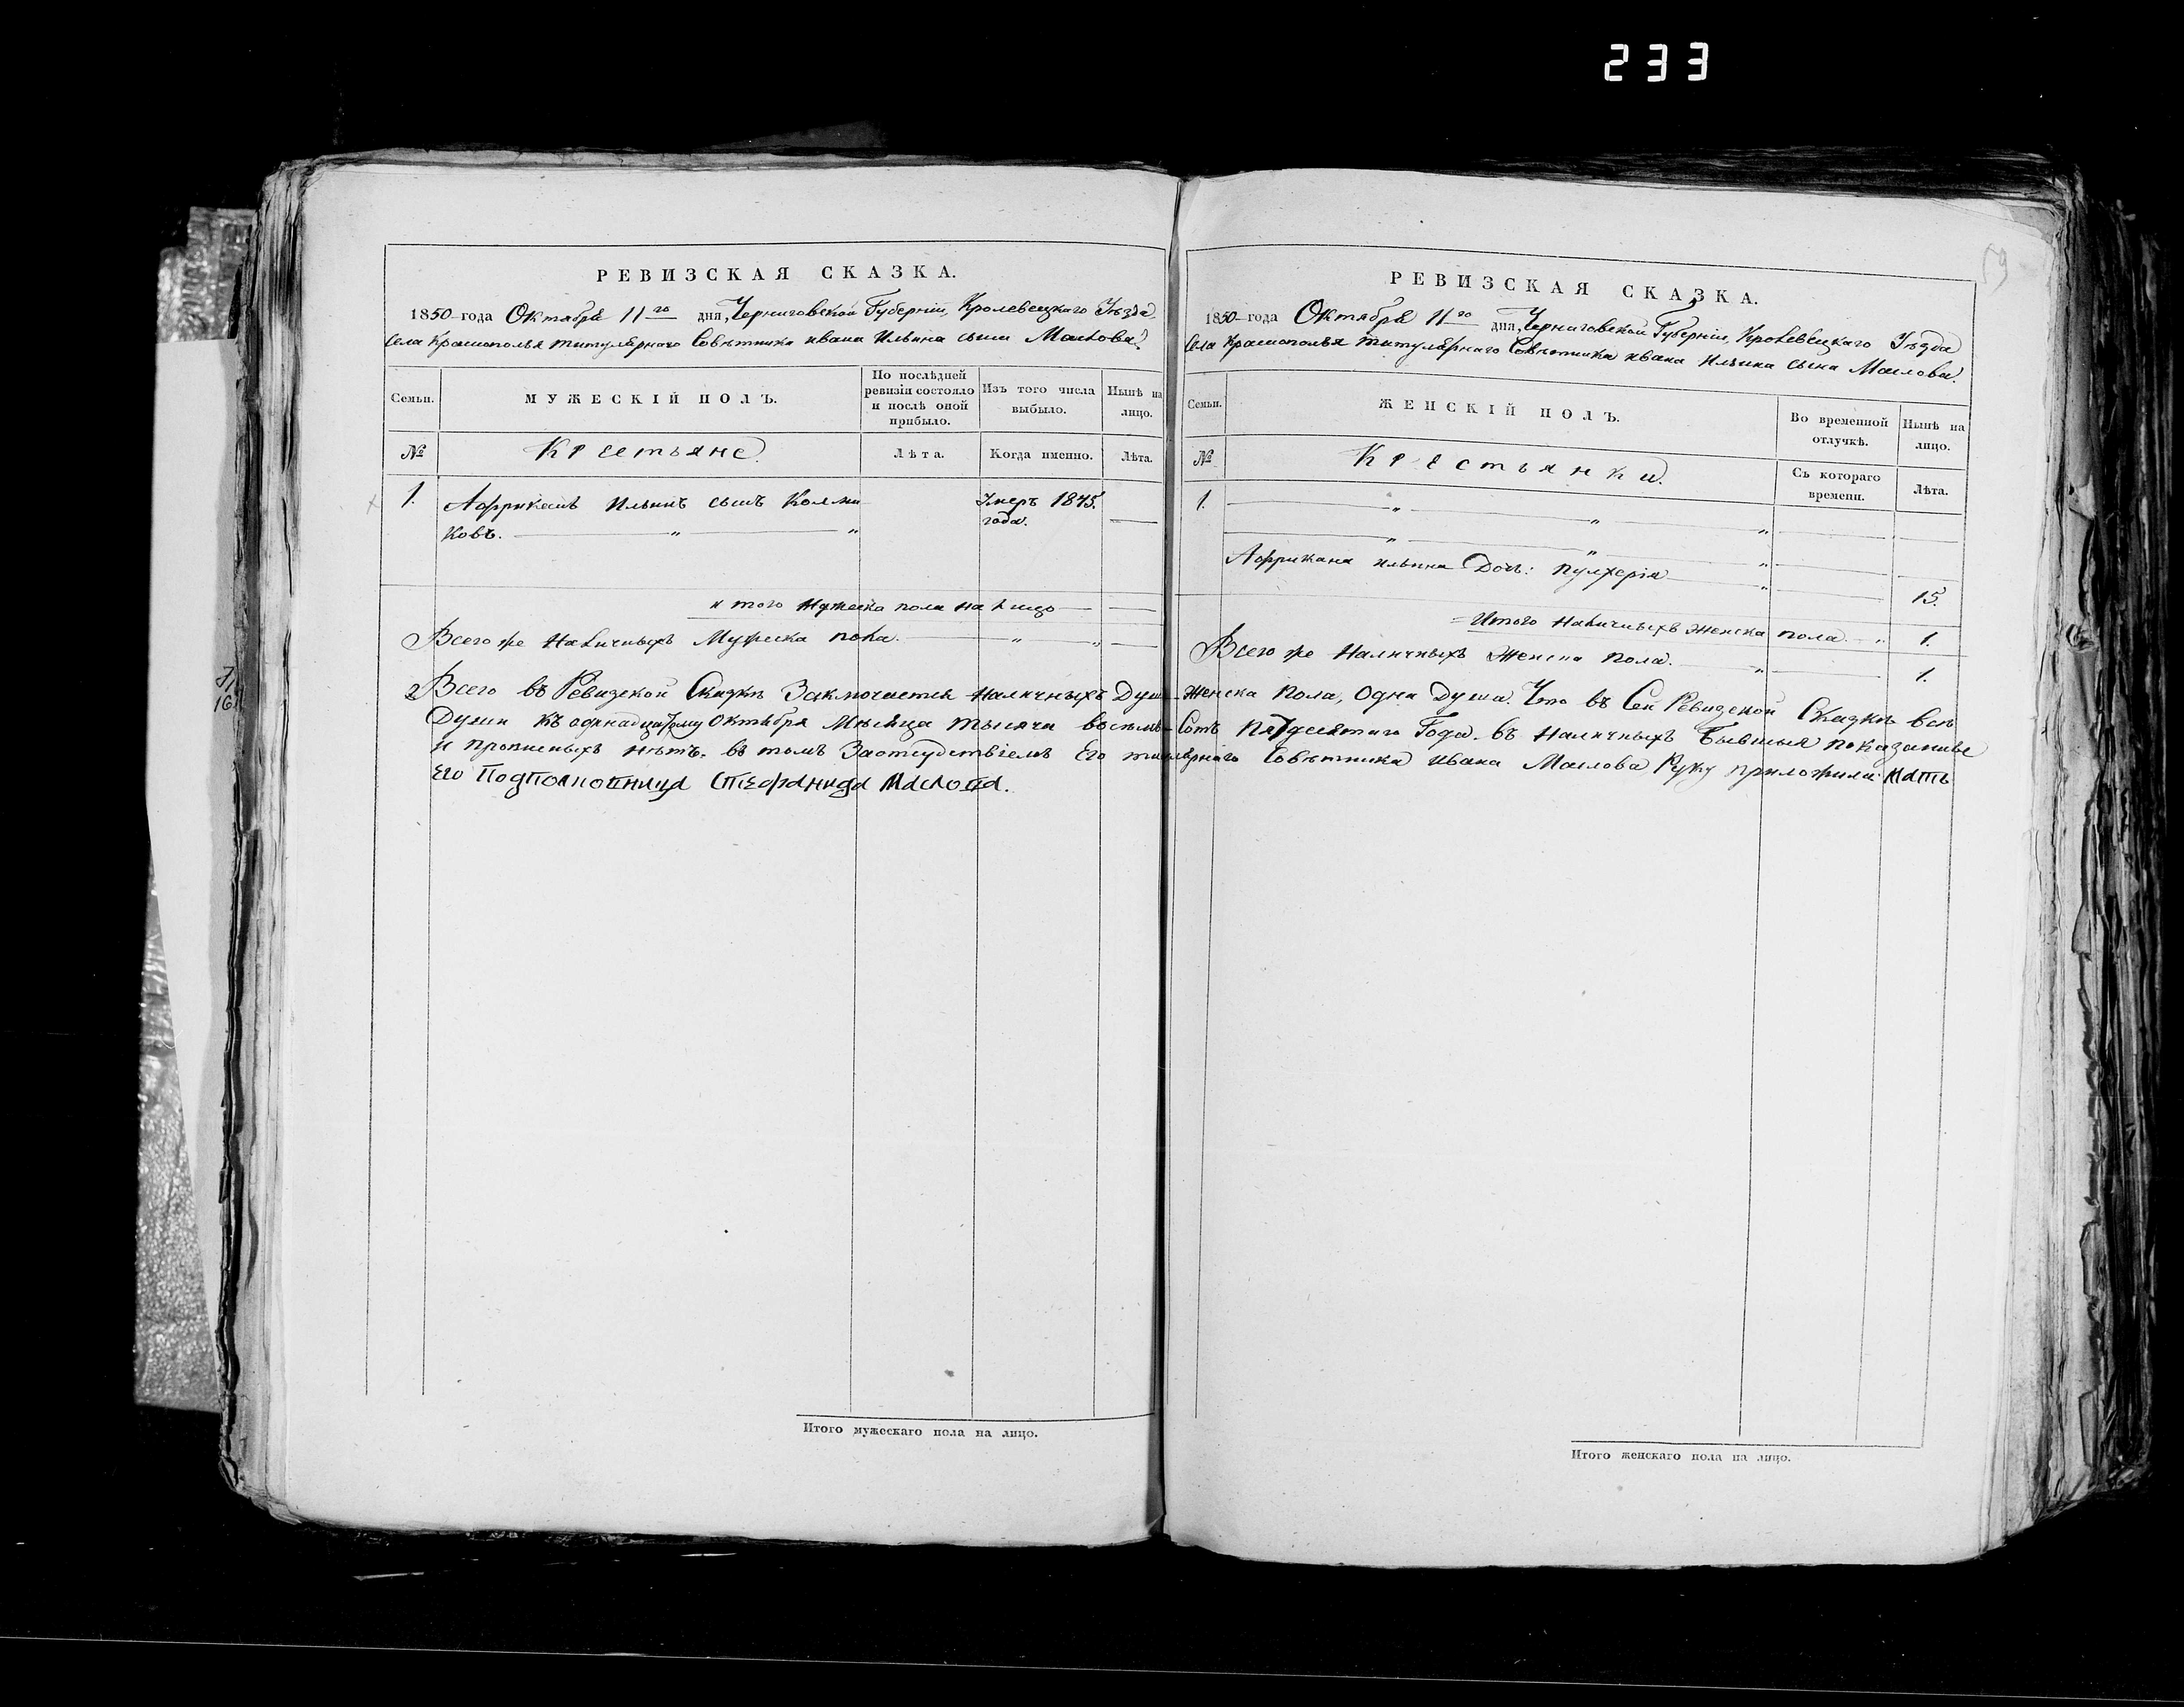 233
РЕВИЗСКАЯ СКАЗКА.
1850 года Октября 11го дня, Черниговской Губерніи, Кролевецкаго Уѣзда
села Краснополья титулярнаго Совѣтника Ивана Ильина сына Маслова.
Семьи.
МУЖЕСКІЙ ПОЛЪ.
По послѣдней ревизіи состояло и послѣ оной прибыло.
Изъ того числа выбыло.
Нынѣ на лицо.
№
Крестьяне.
Лѣта.
Когда именно.
Лѣта.
1. Африканъ Ильинъ сынъ Колми Умеръ 1845.
ковъ. года.
и того мужеска пола на лицо
Всего же Наличныхъ Мужеска пола.
РЕВИЗСКАЯ СКАЗКА.
1850 года Октября 11го дня, Черниговской Губерніи, Кролевецкаго Уѣзда
села Краснополья титулярнаго Совѣтника Ивана Ильина сына Маслова.
Семьи.
ЖЕНСКІЙ ПОЛЪ.
Во временной отлучкѣ.
Нынѣ на лицо.
№
Крестьянки.
Съ котораго времени.
Лѣта.
1.
Африкана Ильина Дочь: Пулхерія 15.
Итого наличныхъ женска пола. 1.
Всего же Наличныхъ Женска пола. 1.
Всего въ Ревизской Сказкѣ Заключается наличныхъ Душъ женска пола, одна душа. Что въ Сей Ревизской Сказкѣ всѣ
Души къ одинадцатому Октября Мѣсяца тысяча восемь Сотъ пятдесятаго Года въ наличныхъ бывшыя показанные
и прописныхъ нѣтъ. въ томъ Заотсудствіемъ Его титулярнаго Совѣтника Ивана Маслова Руку приложила мать
Его Подполковница Стефанида Маслова.
Итого мужескаго пола на лицо.
Итого женскаго пола на лицо.